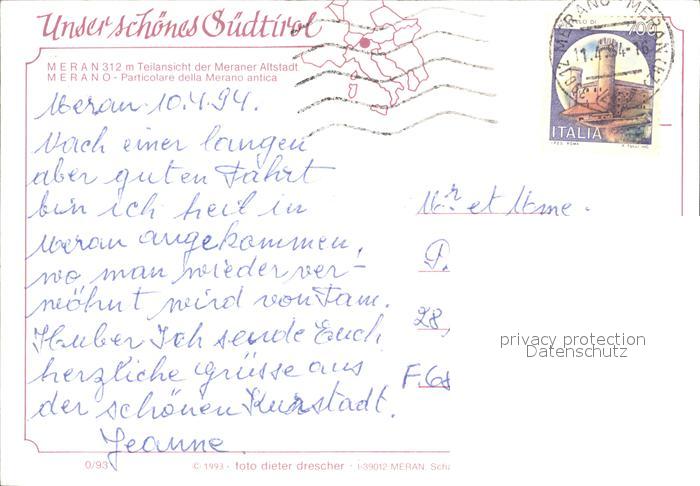 Unser schönes Südtirol
MERAN 312 m Teilansicht der Meraner Altstadt
MERANO - Particolare della Merano antica
700
ITALIA
I.P.Z.S. ROMA
MERANO - MERAN
11.4.94-16
Meran 10.4.94.
Nach einer langen
aber guten Fahrt
bin ich heil in
Meran angekommen,
wo man wieder ver-
wöhnt wird von Fam.
Huber Ich sende Euch
herzliche Grüsse aus
der schönen Kurstadt.
Jeanne
Mr et Mme.
P.
28,
F.68
privacy protection
Datenschutz
0/93
© 1993 - foto dieter drescher - I-39012 MERAN. Sch